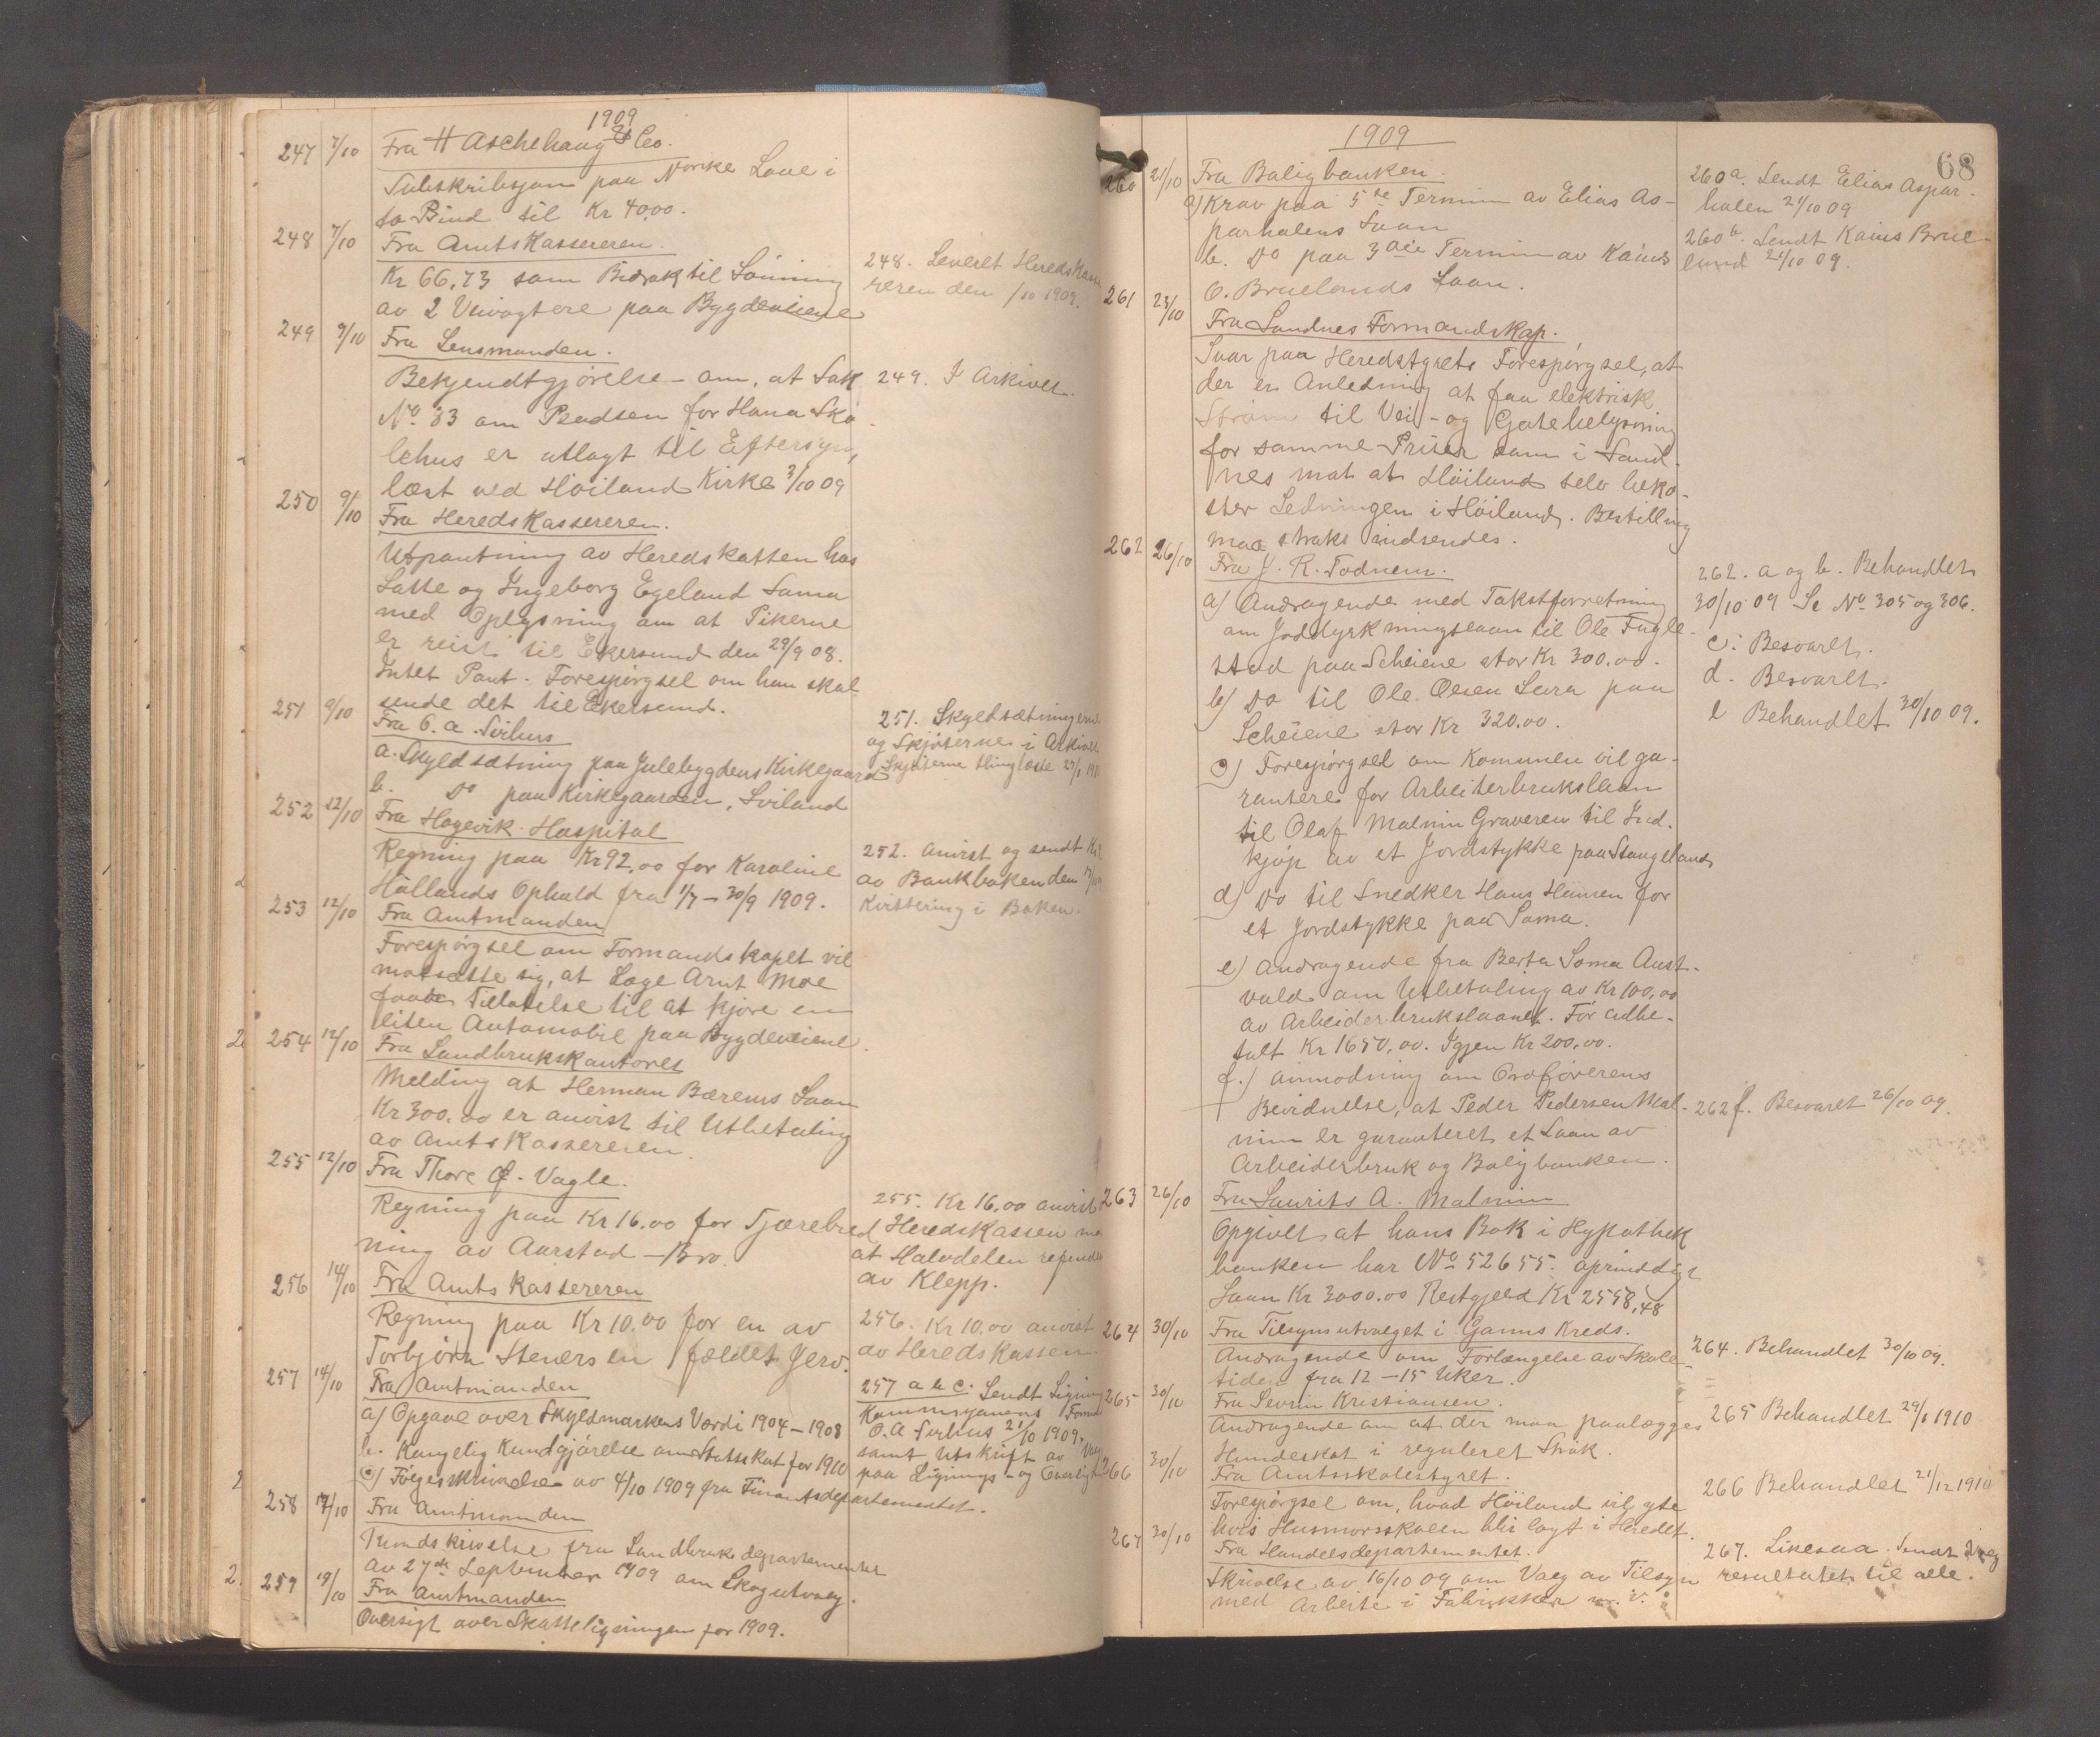 1909
247 7/10 Fra H Aschehaug & Co.
Subskribsjon paa Norske Love i
to Bind til Kr 40,00.
248 7/10 Fra Amtskassereren.
Kr 66,73 som Bidrak til Lönning
av 2 Veivogtere paa Bygdeveiene
249 9/10 Fra Lensmanden.
Bekjendtgjörelse om, at Sak
No 33 om Pladsen for Hana Sko-
lehus er utlagt til Eftersyn,
læst ved Höiland Kirke 3/10 09
250 9/10 Fra Heredskassereren.
Utpantning av Heredskatten hos
Latte og Ingeborg Egeland Soma
med Oplysning om at Pikerne
er reist til Ekersund den 29/9 08.
Intet Pant. Forespörgsel om han skal
sende det til Ekersund.
251 9/10 Fra O. A. Sirhus
a. Skyldsætning paa Julebygdens Kirkegaard
b. Do paa Kirkegaarden, Sviland
252 12/10 Fra Hagevik Hospital
Regning paa Kr 92,00 for Karoline
Hallands Ophold fra 1/7 – 30/9 1909.
253 12/10 Fra Amtmanden
Forespörgsel om Formandskapet vil
motsætte sig, at Læge Arnt Moe
faar Tillatelse til at kjöre en
liten Automobil paa Bygdeveiene.
254 12/10 Fra Landbrukskontoret
Melding at Herman Bærems Laan
Kr 300,00 er anvist til Utbetaling
av Amtskassereren.
255 12/10 Fra Thore O. Vagle.
Regning paa Kr 16,00 for Tjærebred
ning av Aarstad – Bro.
256 14/10 Fra Amtskassereren
Regning paa Kr 10,00 for en av
Torbjörn Stenersen fældet Jerv.
257 14/10 Fra Amtmanden
a) Opgave over Skyldmarkens Værdi 1904 – 1908
b. Kongelig Kundgjörelse om Statsskat for 1910
c) Fölgeskrivelse av 4/10 1909 fra Finantsdepartementet.
258 19/10 Fra Amtmanden
Rundskrivelse fra Landbruksdepartementet
av 27de September 1909 om Skogutvalg.
259 19/10 Fra Amtmanden
Oversigt over Skatteligningen for 1909.
248. Leveret Heredskasse
reren den /10 1909.
249. I Arkivet.
251. Skyldsætningerne
og Skjöterne i Arkivet
Skjöterne thinglæste
252. Anvist og sendt Kr.
av Bankboken den
Kvittering i Boken.
255. Kr 16,00 anvist
Heredskassen mo
at Halvdelen refunde
av Klepp.
256. Kr 10,00 anvist
av Heredskassen.
257 a b c. Sendt Ligning
Kommisjonens Form
O. A Sirhus 21/10 1909,
samt Utskrift av Val
paa Lignings- og Overlign
1909
68
260 21/10 Fra Boligbanken.
a) Krav paa 5te Termin av Elias As-
parhalens Laan
b. Do paa 3die Termin av Kaius
O. Bruelands Laan.
261 23/10 Fra Sandnes Formandskap.
Svar paa Heredstyrets Forespörgsel, at
der er Anledning at faa elektrisk
Ström til Vei- og Gatebelysning
for samme Priser som i Sand-
nes mot at Höiland selv beko-
ster Ledningen i Höiland. Bestilling
maa straks indsendes.
262 26/10 Fra J. R. Todnem.
a) Andragende med Takstforretning
om Jorddyrkningslaan til Ole Fugle-
stad paa Scheiene stor Kr 300,00.
b) Do til Ole Olsen Lura paa
Scheiene stor Kr 320,00.
c) Forespörgsel om Kommunen vil ga-
rantere for Arbeiterbrukslaan
til Olaf Malmin Graveren til Ind-
kjöp av et Jordstykke paa Stangeland
d) Do til Snedker Hans Hansen for
et Jordstykke paa Soma.
e) Andragende fra Berta Soma Aust-
vold om Utbetaling av Kr 100,00
av Arbeiderbrukslaanet. För utbe-
talt Kr 1650,00. Igjen Kr 200,00.
f.) Anmodning om Ordförerens
Bevidnelse, at Peder Pedersen Mal-
min er garanteret et Laan av
Arbeiderbruk og Boligbanken.
263 26/10 Fra Laurits A. Malmin
Opgivet at hans Bok i Hypothek
banken har No 52655. oprinddigt
Laan Kr 3000,00 Restgjeld Kr 2558,48
264 30/10 Fra Tilsynsutvalget i Ganns Kreds.
Andragende om Forlængelse av Skole-
tiden fra 12 – 15 Uker.
265 30/10 Fra Sevrin Kristiansen.
Andragende om at der maa paalægges
Hundeskat i reguleret Strök.
266 30/10 Fra Amtsskolestyret.
Forespörgsel om, hvad Höiland vil yte
hvis Husmorsskolen blir lagt i Heredet.
267 30/10 Fra Handelsdepartementet.
Skrivelse av 16/10 09 om Valg av Tilsyn
med Arbeite i Fabrikker m. v.
260 a. Sendt Elias Aspar-
halen 21/10 09
260 b. Sendt Kaius Brue-
land 21/10 09.
262. a og b. Behandlet
30/10 09 Se No 305 og 306.
c. Besvaret.
d. Besvaret.
e Behandlet 30/10 09.
262 f. Besvaret 26/10 09.
264. Behandlet 30/10 09.
265 Behandlet 29/1 1910
266 Behandlet 21/12 1910
267. Likesaa. Sendt Valg
resultatet til alle.